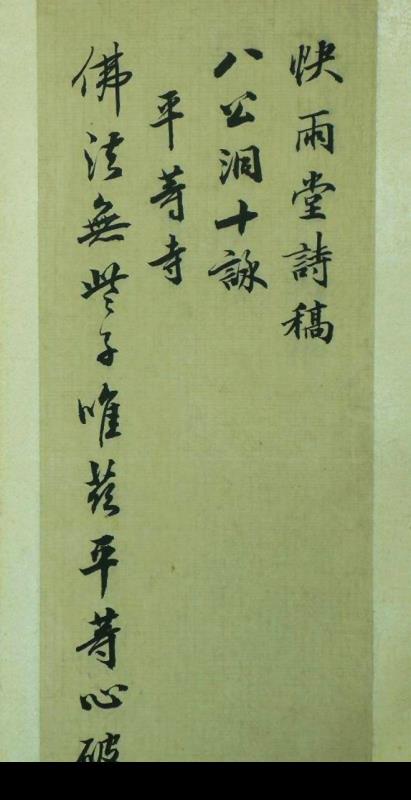 快雨堂詩稿
八公洞十詠
平等寺
佛法無些子唯茲平等心破